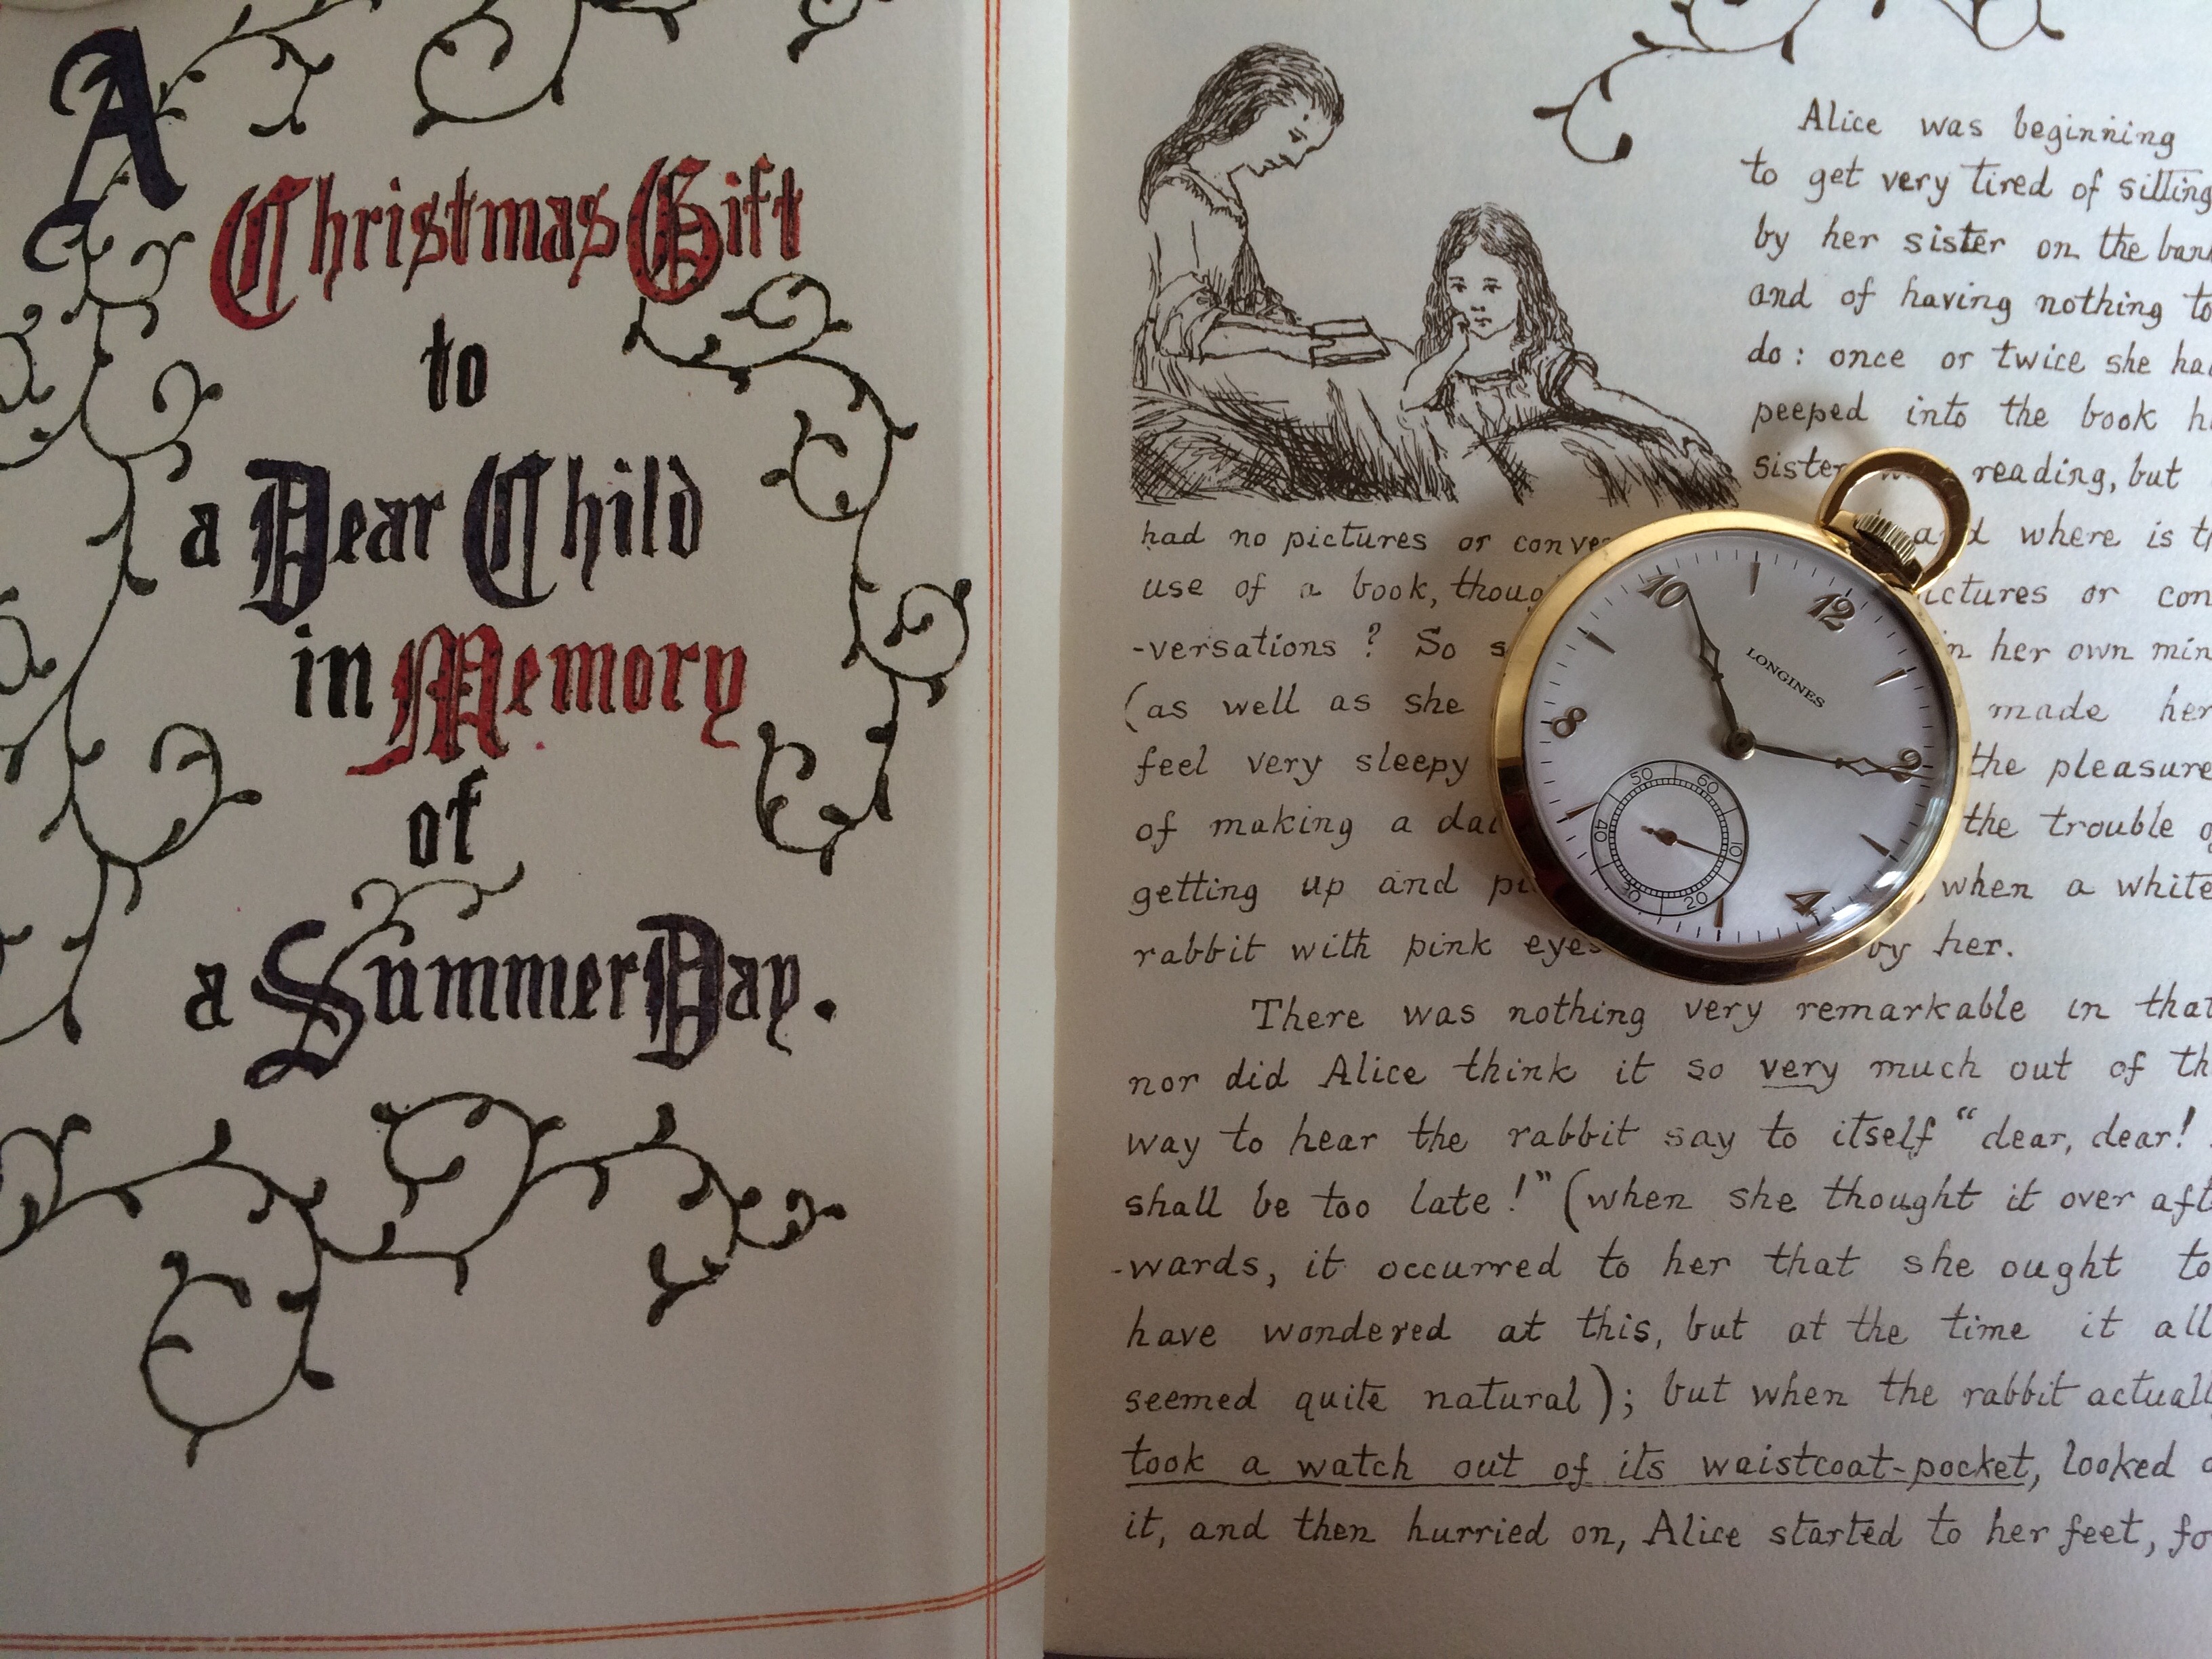 A
Christmas Gift
to
a Dear Child
in Memory
of
a Summer Day.
Alice was beginning
to get very tired of sitting
by her sister on the
and of having nothing to
do: once or twice she
peeped into the book
sister reading, but
had no pictures or
where is
use of a book,
or
-versations? So
in her own
(as well as she
made her
feel very sleepy
the pleasure
of making a
the trouble
getting up and
when a white
rabbit with pink
by her.
There was nothing very remarkable in
nor did Alice think it so very much out of
way to hear the rabbit say to itself "dear, dear!
shall be too late!" (when she thought it over
-wards, it occurred to her that she ought to
have wondered at this, but at the time it all
seemed quite natural); but when the rabbit
took a watch out of its waistcoat-pocket, looked
it, and then hurried on, Alice started to her feet,
10
12
LONGINES
8
2
4
60
50
40
30
20
10